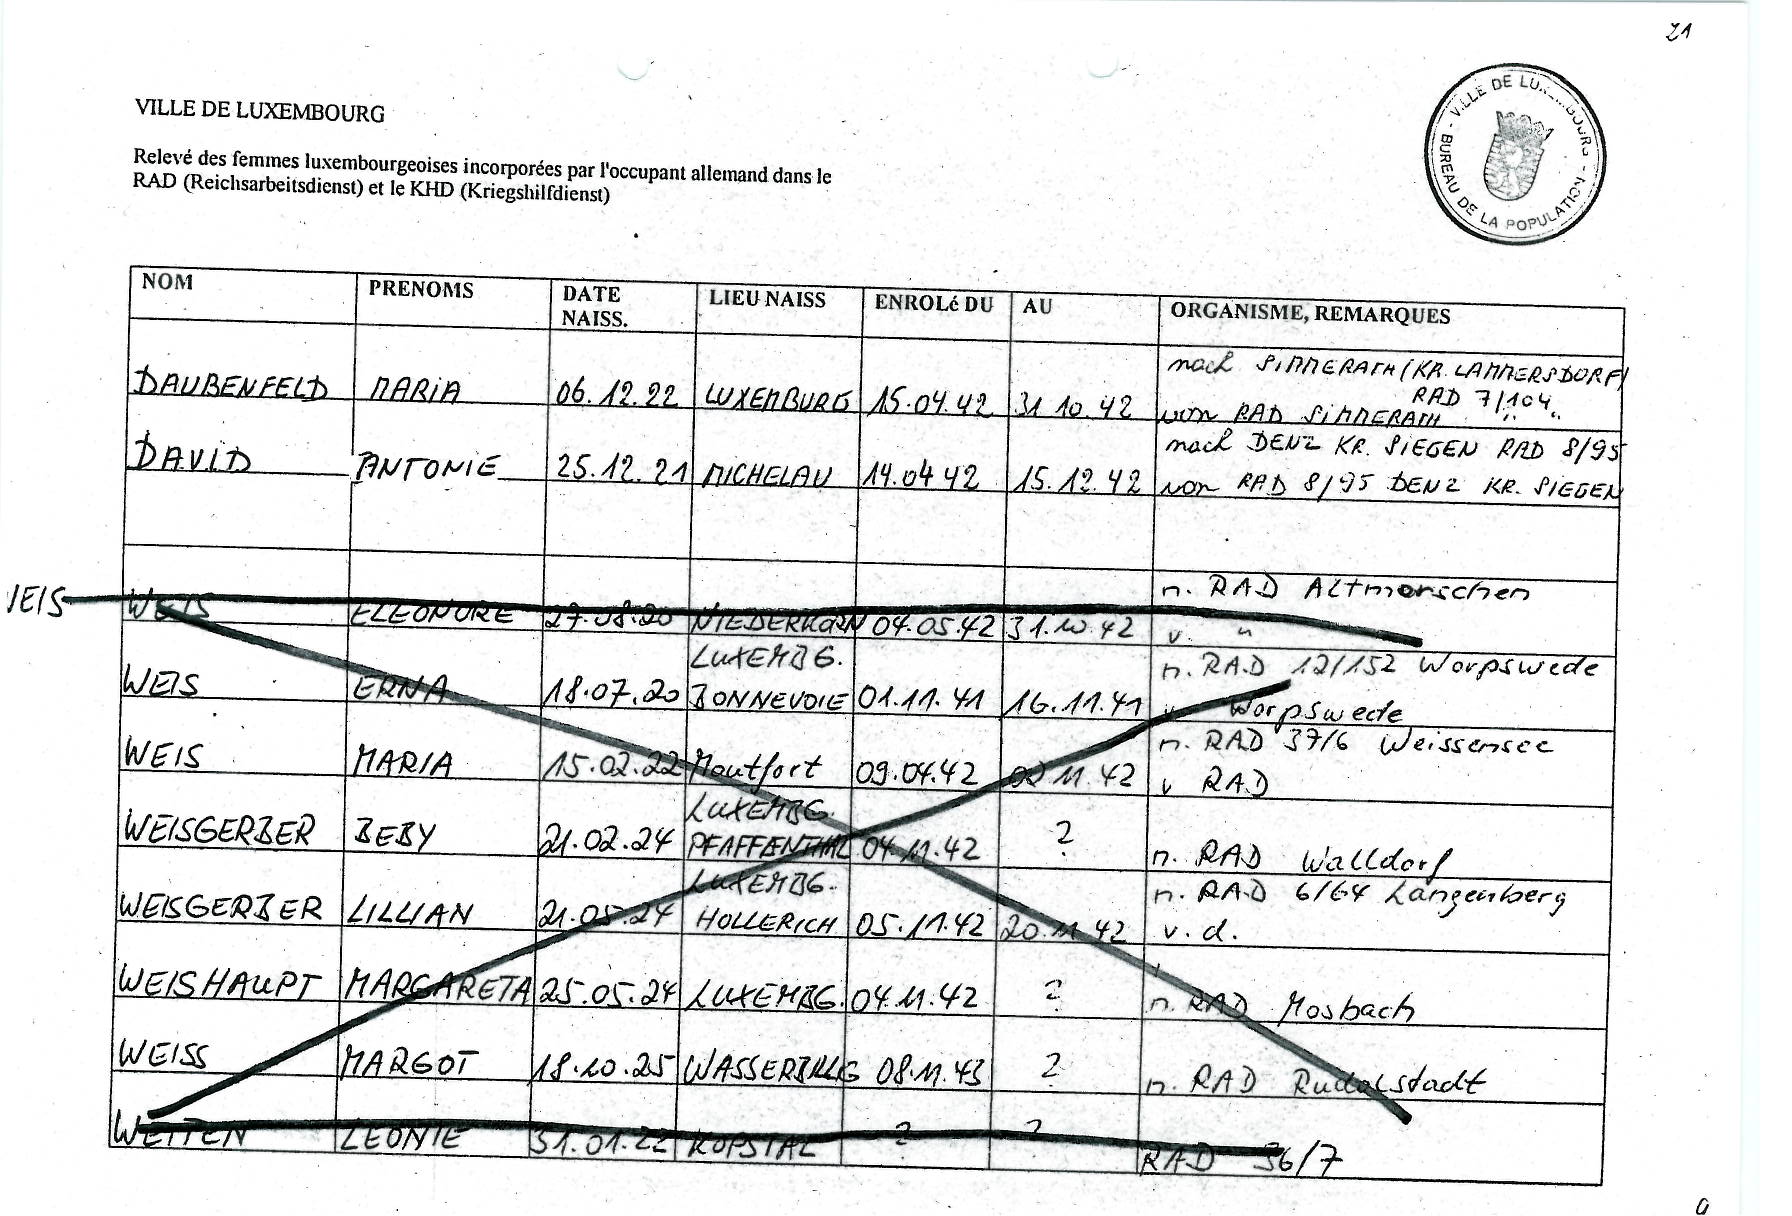 21
VILLE DE LUXEMBOURG
VILLE DE LUXEMBOURG - BUREAU DE LA POPULATION -
Relevé des femmes luxembourgeoises incorporées par l'occupant allemand dans le
RAD (Reichsarbeitsdienst) et le KHD (Kriegshilfdienst)
NOM PRENOMS DATE NAISS. LIEU NAISS ENROLé DU AU ORGANISME, REMARQUES
nach SIMMERATH (KR. LAMMERSDORF)
RAD 7/104
DAUBENFELD MARIA 06.12.22 LUXEMBURG 15.04.42 31.10.42 von RAD SIMMERATH " "
nach DENZ KR. SIEGEN RAD 8/95
DAVID ANTONIE 25.12.21 MICHELAU 14.04.42 15.12.42 von RAD 8/95 DENZ KR. SIEGEN
n. RAD Altmorschen
WEIS ELEONORE 27.08.20 NIEDERKORN 04.05.42 31.10.42 v. "
LUXEMBG. n. RAD 12/152 Worpswede
WEIS ERNA 18.07.20 BONNEVOIE 01.11.41 16.11.41 Worpswede
n. RAD 37/6 Weissensee
WEIS MARIA 15.02.22 Moutfort 09.04.42 11.42 v RAD
LUXEMBG.
WEISGERBER BEBY 21.02.24 PFAFFENTHAL 04.11.42 ? n. RAD Walldorf
LUXEMBG. n. RAD 6/64 Langenberg
WEISGERBER LILLIAN 21.05.24 HOLLERICH 05.11.42 20.11.42 v. d.
WEISHAUPT MARGARETA 25.05.24 LUXEMBG. 04.11.42 ? n. RAD Mosbach
WEISS MARGOT 18.10.25 WASSERBILLIG 08.11.43 ? n. RAD Rudolstadt
WEITEN LEONIE 31.01.22 KOPSTAL ? ? RAD 36/7